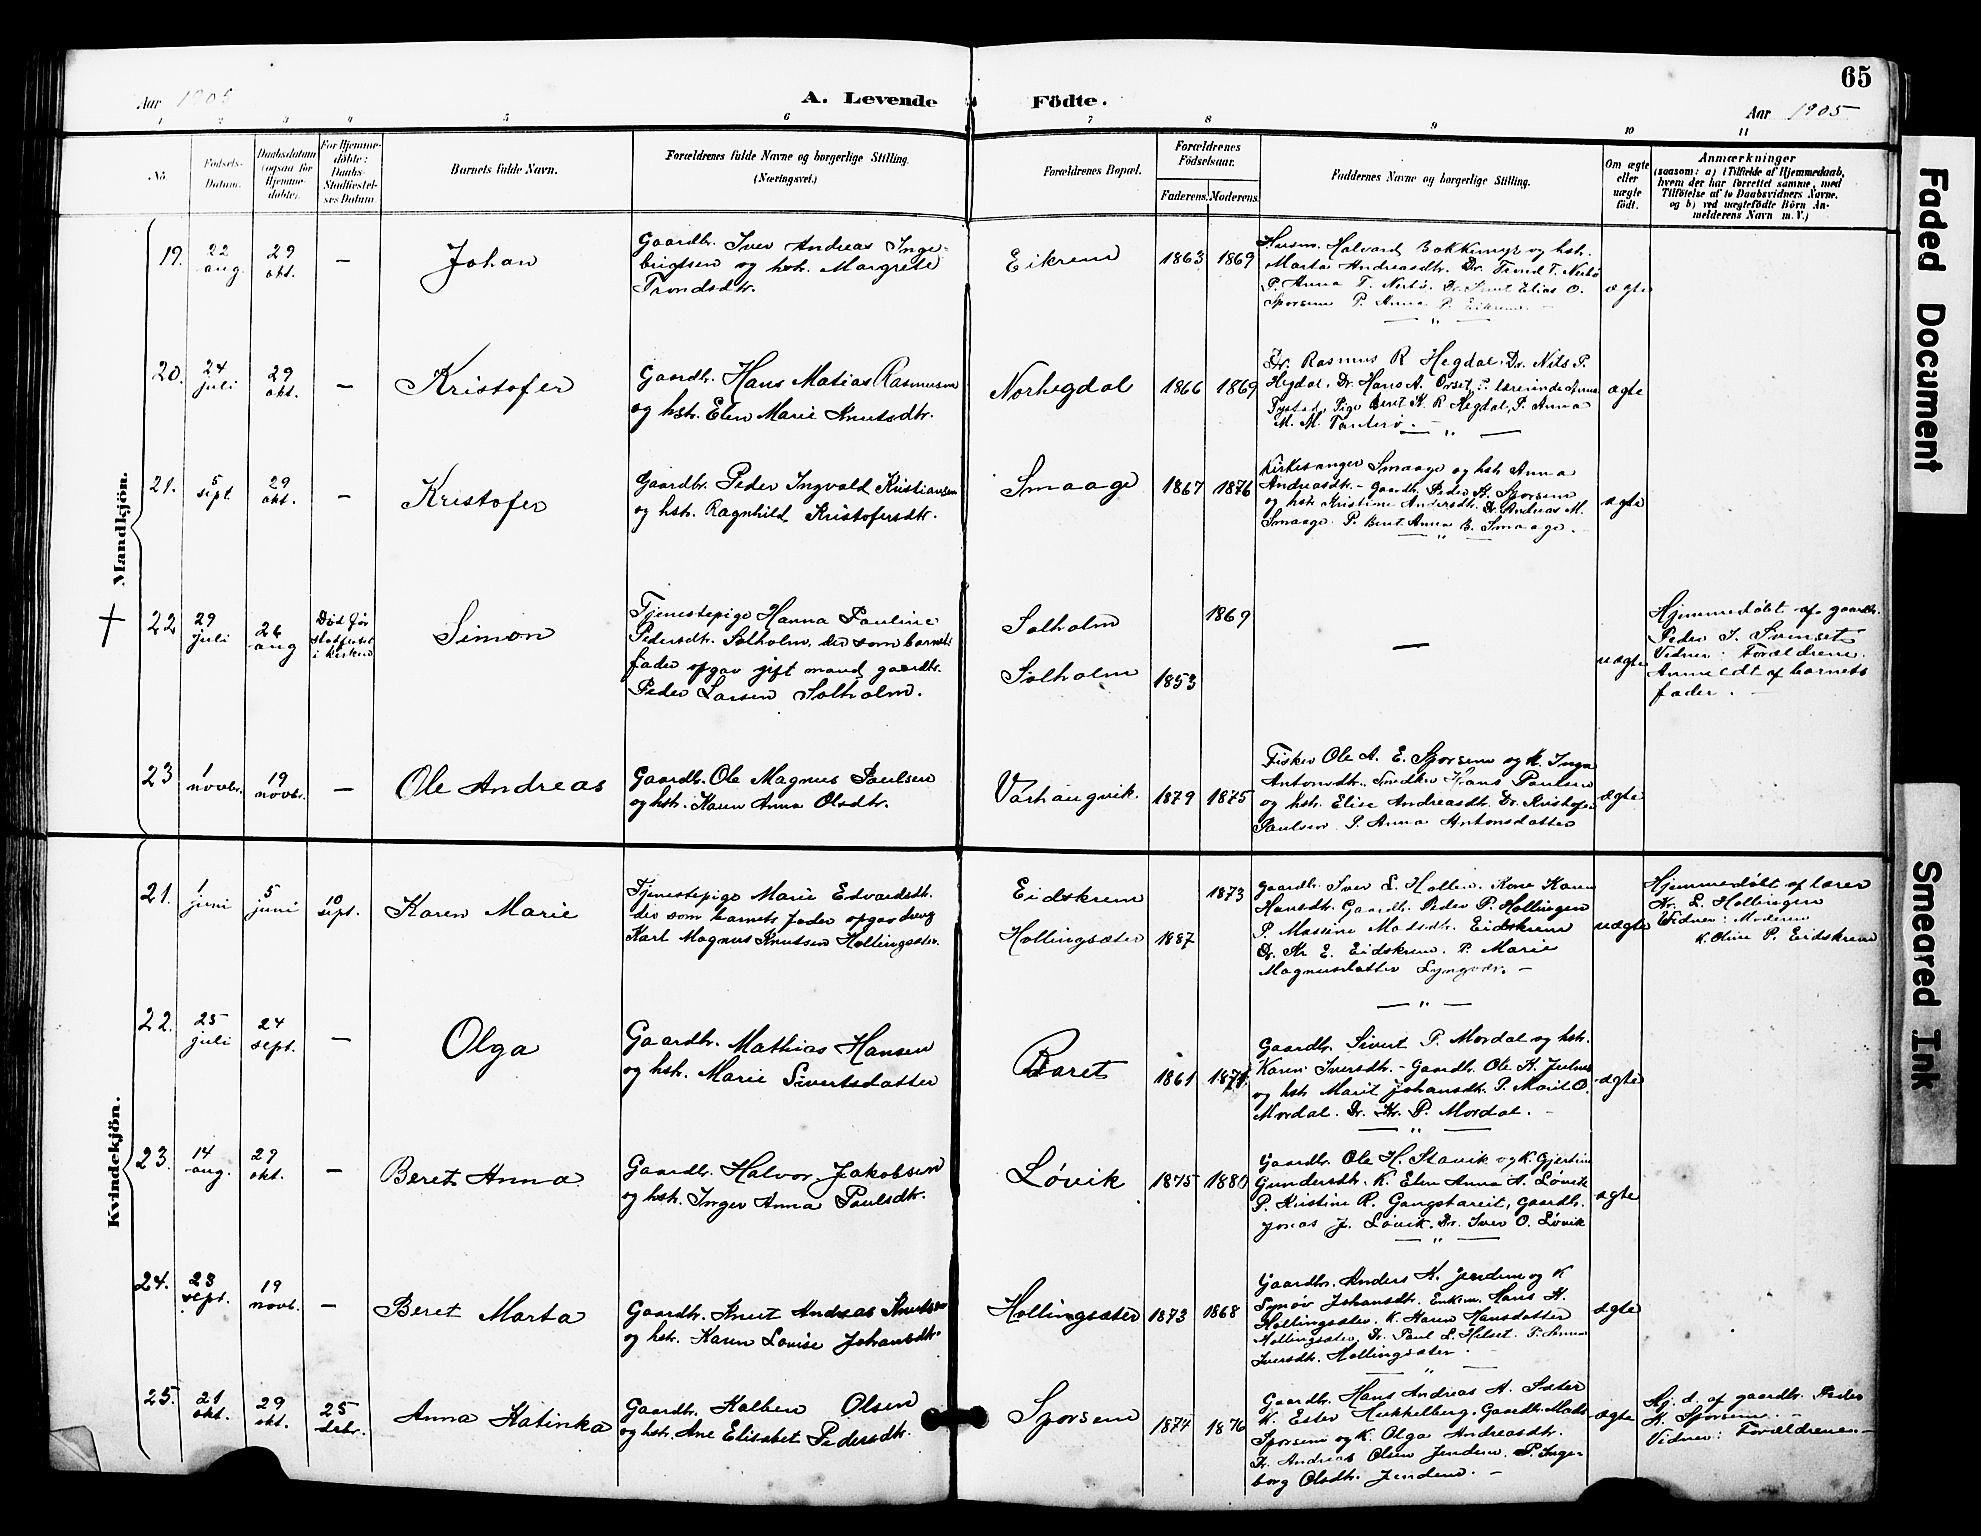 65
Aar 1905
A. Levende Födte.
Aar 1905
1 2 3 4 5 6 7 8 9 10 11
No.
Födsels-
Datum.
Daabsdatum
(ogsaa for
Hjemme-
döbte).
For Hjemme-
döbte:
Daabs-
Stadfæstel-
ses Datum.
Barnets fulde Navn.
Forældrenes fulde Navne og borgerlige Stilling.
(Næringsvei.)
Forældrenes Bopæl.
Forældrenes
Födselsaar.
Faderens. Moderens.
Faddernes Navne og borgerlige Stilling.
Om ægte
eller
uægte
födt.
Anmærkninger
(saasom: a) i Tilfælde af Hjemmedaab,
hvem der har forrettet samme, med
Tilföielse af to Daabsvidners Navne,
og b) ved uægtefödte Börn An-
melderens Navn m. V.)
Mandkjön.
19.
22
aug.
29
okt.
—
Johan
Gaardbr. Iver Andreas Inge-
brigtsen og hst. Margrete
Trondsdtr.
Eikrem
1863 1869
Husm. Halvard Bakkemyr og hst.
Marta Andreasdtr. Dr. Trond T. Nerbø
P. Anna T. Nerbø. Dr. Knut Elias O.
Sporsem P. Anna P. Eikrem. —
ægte
20.
24
juli
29
okt.
—
Kristofer
Gaardbr. Hans Matias Rasmusen
og hst. Elen Marie Knutsdtr.
Norhegdal
1866 1869
Dr. Rasmus R Hegdal. Dr. Nils P.
Hegdal. Dr. Hans A. Orset, lærerinde Anna
Pige Beret K. R Hegdal, P. Anna
M. M. Tauterø. —
ægte
21.
5
sept.
29
okt.
—
Kristofer
Gaardbr. Peder Ingvald Kristiansen
og hst. Ragnhild Kristofersdtr.
Smaage
1867 1876
Kirkesanger Smaage og hst. Anna
Andreasdtr. - Gaardbr. Peder K. Sporsem
og hst. Kristine Andersdtr. Dr. Andreas M.
Smaage. P. Beret Anna B. Smaage. —
ægte
†
22
29
juli
26
aug
Død før
stadfestet
i kirken
Simon
Tjenestepige Hanna Pauline
Pedersdtr. Solholm, der som barnets
fader opgav gift mand gaardbr.
Peder Larsen Solholm.
Solholm
Solholm
1869
1853
—
uægte
Hjemmedøbt af gaardbr.
Peder J. Svenset
Vidner: Forældrene.
Anmeldt af barnets
fader. —
23
1
novbr.
19
novbr.
—
Ole Andreas
Gaardbr. Ole Magnus Paulsen
og hst. Karen Anna Olsdtr.
Varhaugvik.
1879 1875
Fisker Ole A. E. Sporsem og K. Inga
Antonsdtr., Snedker Hans Paulsen
og hst. Elise Andreasdtr. Dr. Kristofer
Paulsen P. Anna Antonsdatter
ægte
Kvindekjön.
21.
1
juni
5
juni
10
sept.
Karen Marie
Tjenestepige Marie Edvardsdtr.
der som barnets fader opgav dreng
Karl Magnus Knutsen Hollingsæter.
Eidskrem
Hollingsæter
1873
1887
Gaardbr. Iver L. Hollin. Kone Karen
Hansdtr. Gaardbr. Peder P. Hollingen
P. Massine Matsdtr. Eidskrem
Dr. Kr E. Eidskrem. P. Marie
Magnusdatter Lyngvær. —
uægte
Hjemmedøbt af lærer
Kr. L. Hollingen
Vidner: Moderen
K. Oline P. Eidskrem
22.
25
juli
24
sept.
—
Olga
Gaardbr. Mathias Hansen
og hst. Marie Sivertsdatter
Raret
1861 1871.
Gaardbr. Sivert P. Mordal og hst.
Karen Iversdtr. - Gaardbr. Ole K. Julnes
og hst Marit Johansdtr. P. Marit O.
Mordal. Dr. Kr. P. Mordal. —
ægte
23.
14
aug.
29
okt.
—
Beret Anna
Gaardbr. Halvor Jakobsen
og hst. Inger Anna Paulsdtr.
Løvik
1875 1880
Gaardbr. Ole H. Stavik og K. Gjertine
Gundersdtr. K. Elen Anna A. Løvik
P. Kristine R. Gangstareit, Gaardbr.
Jonas J. Løvik. Dr. Iver O. Løvik
ægte
24.
23
sept.
19
novb.
—
Beret Marta
Gaardbr. Knut Andreas Knutsen
og hst. Karen Lovise Johansdtr.
Hollingsæter
1873 1868
Gaardbr. Anders K. Jendem og K
Synøv Johansdtr. Enkem. Hans K.
Hollingsæter. K. Karen Hansdatter
Hollingsæter. Dr. Paul L. Helset. P. Anna
Iversdtr. Hollingsæter.
ægte
25.
21
okt.
29
okt.
25
debr.
Anna Katinka
Gaardbr. Kolben Olsen
og hst. Ane Elisabet Pedersdtr.
Sporsem
1874 1876
Gaardbr. Hans Andreas A. Sæter
K. Ester Hukkelberg. Gaardbr. Mads
Sporsem og K. Olga Andreasdtr.
Dr. Andreas Olsen Jendem. P. Inge-
borg Olsdtr. Jendem. —
ægte
Hj. d. af gaardbr. Peder
K. Sporsem. —
Vidner: Forældrene —
Faded Document
Smeared Ink